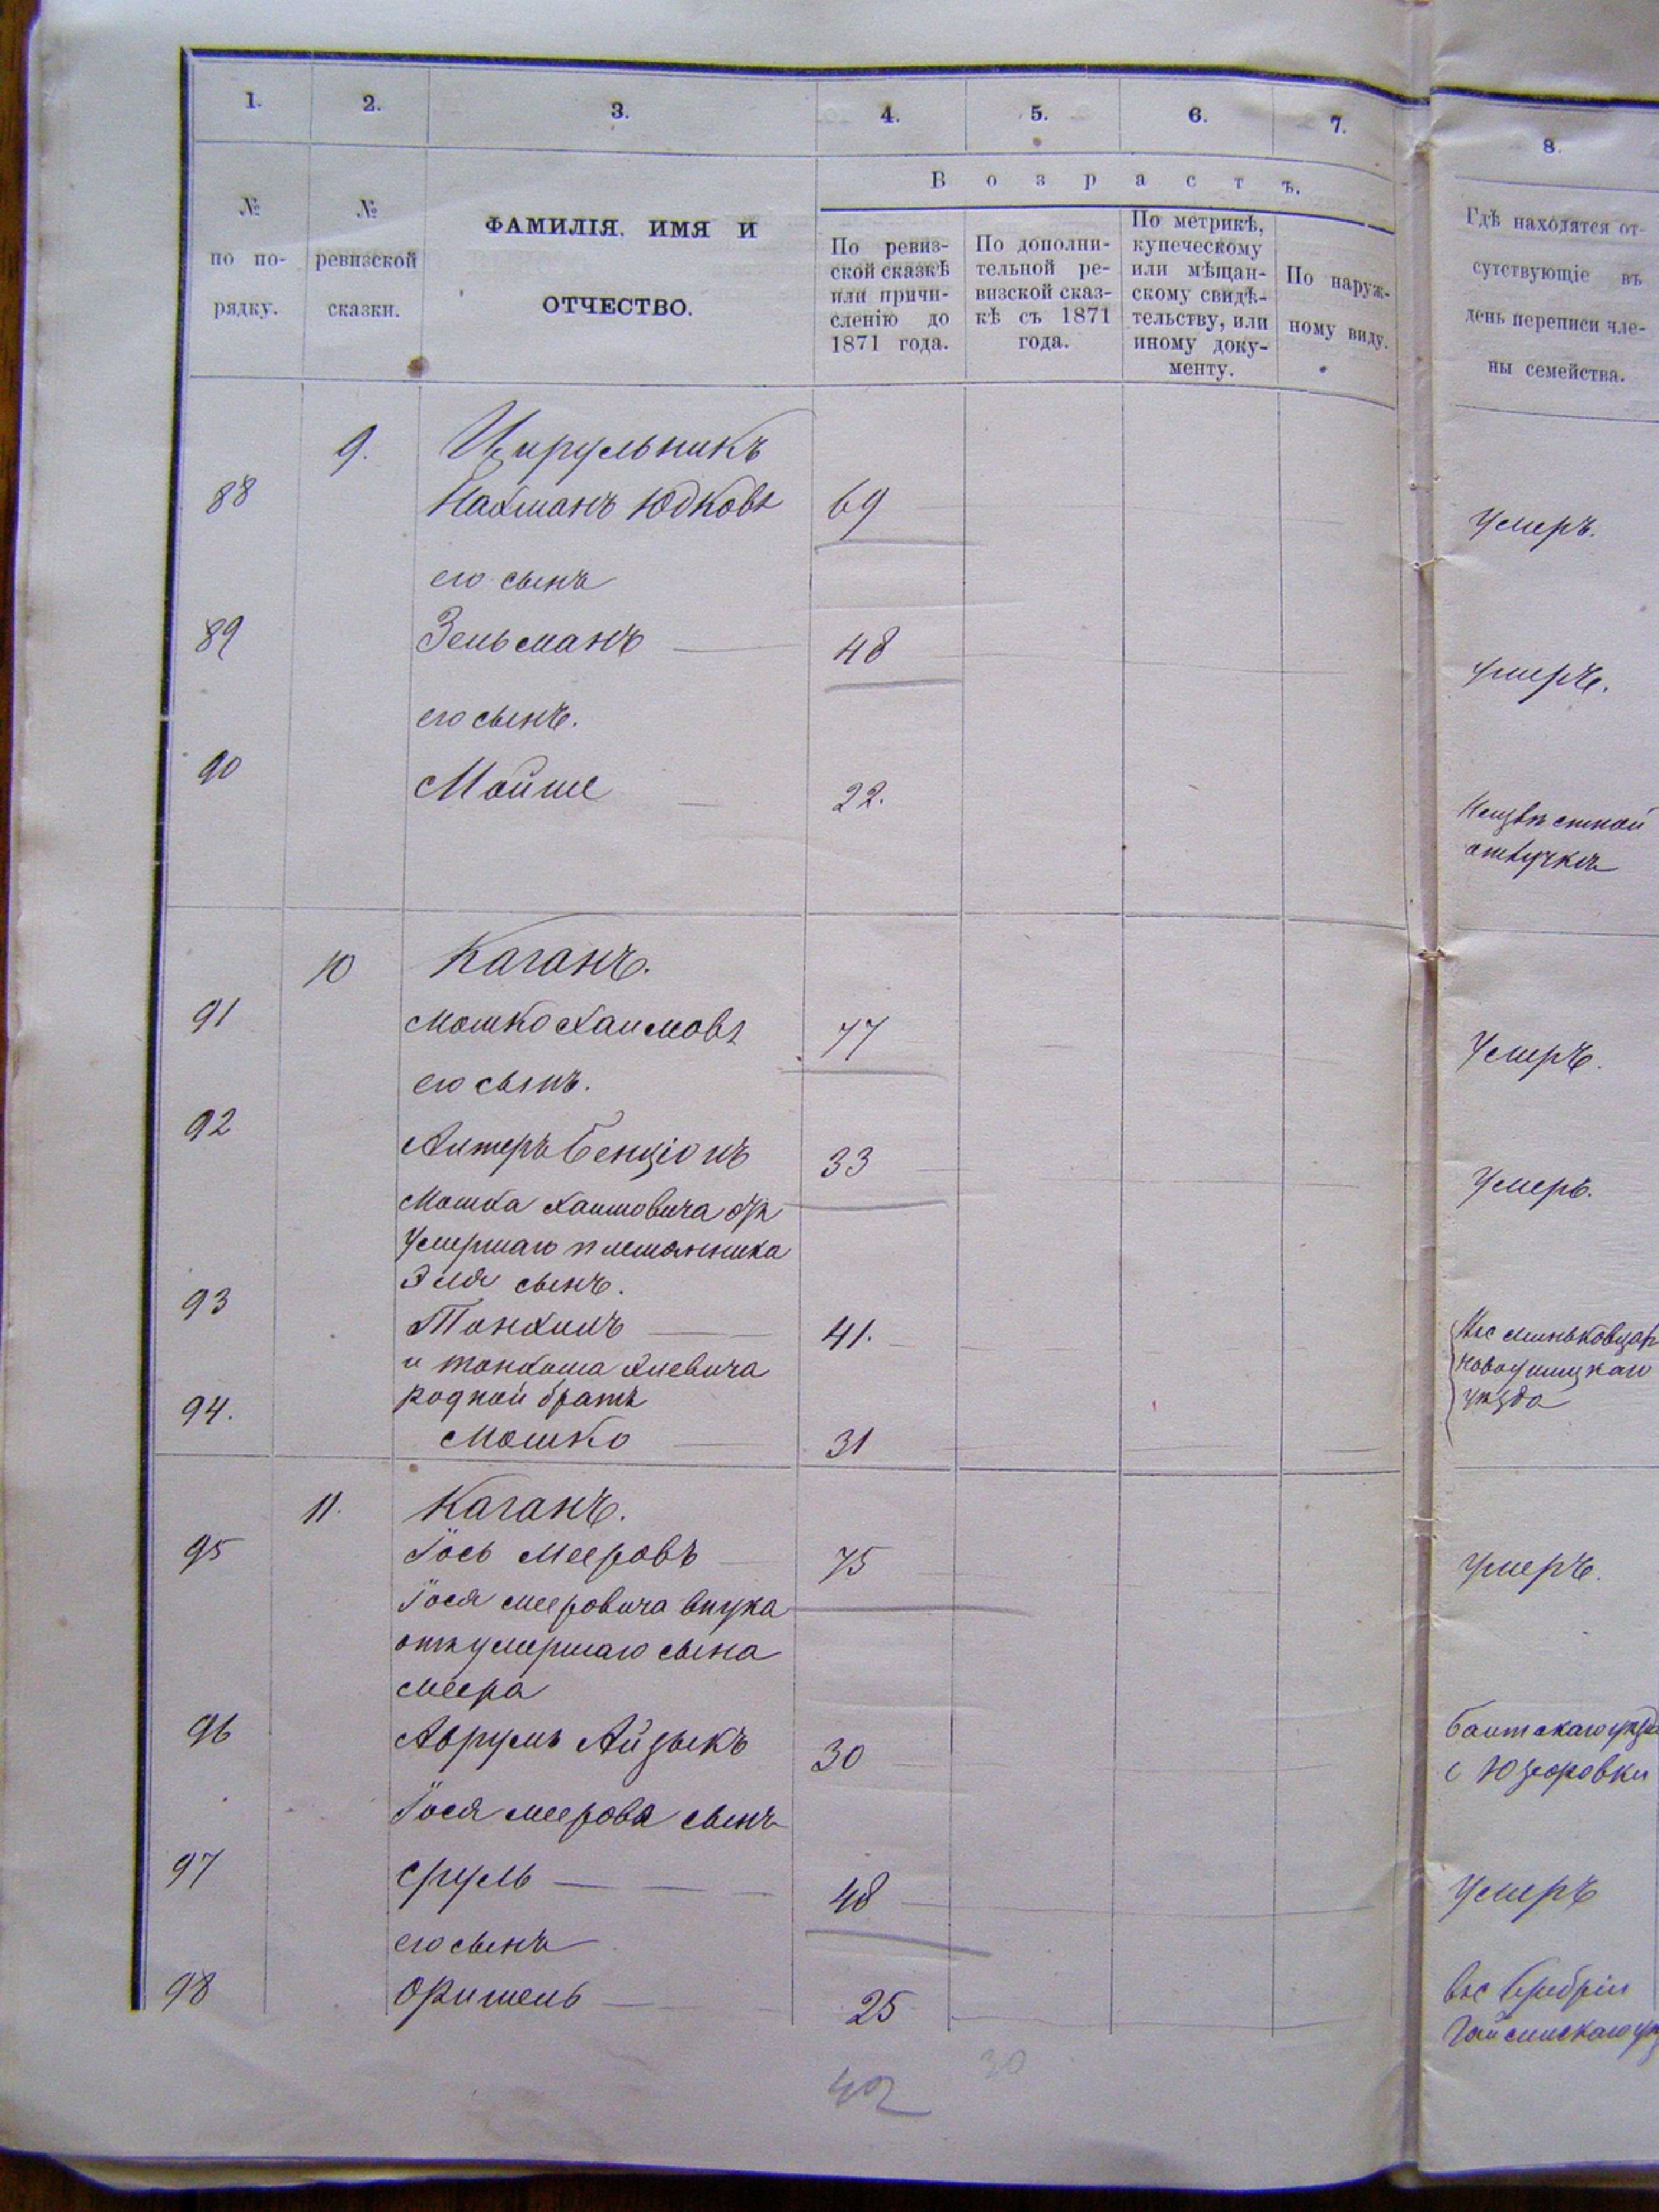 1. 2. 3. 4. 5. 6. 7. 8.
№ по порядку.
№ ревизской сказки.
ФАМИЛІЯ, ИМЯ И
ОТЧЕСТВО.
Возрастъ.
По ревиз-
ской сказкѣ
или причи-
сленію до
1871 года.
По дополни-
тельной ре-
визской сказ-
кѣ съ 1871
года.
По метрикѣ,
купеческому
или мѣщан-
скому свидѣ-
тельству, или
иному доку-
менту.
По наруж-
ному виду.
Гдѣ находятся от-
сутствующіе въ
день переписи чле-
ны семейства.
9. Цирульникъ
88 Нахманъ Юдковъ 69 Умеръ.
его сынъ
89 Зельманъ 48 умеръ.
его сынъ.
90 Мойше 22. Неизвѣстной
отлучкѣ
10 Каганъ.
91 Мошко Хаимовъ 77 Умеръ.
его сынъ.
92 Алтеръ Бенціонъ 33 Умеръ.
Мошка Хаимовича отъ
Умершаго племянника
Эля сынъ.
93 Танхимъ 41. Въ с Миньковцахъ
Новоушицкаго
уѣзда
родной братъ
94. Мошко 31
11. Каганъ.
95 Іось Мееровъ 75 умеръ.
Іося Мееровича внука
отъ умершаго сына
Меера
96 Аврумъ Айзыкъ 30 Балтскаго уѣзда
с Юзеровки
Іося Меерова сынъ
97 Сруль 48 Умеръ
его сынъ
98 25 Въ с
Гайсинскаго
42 30